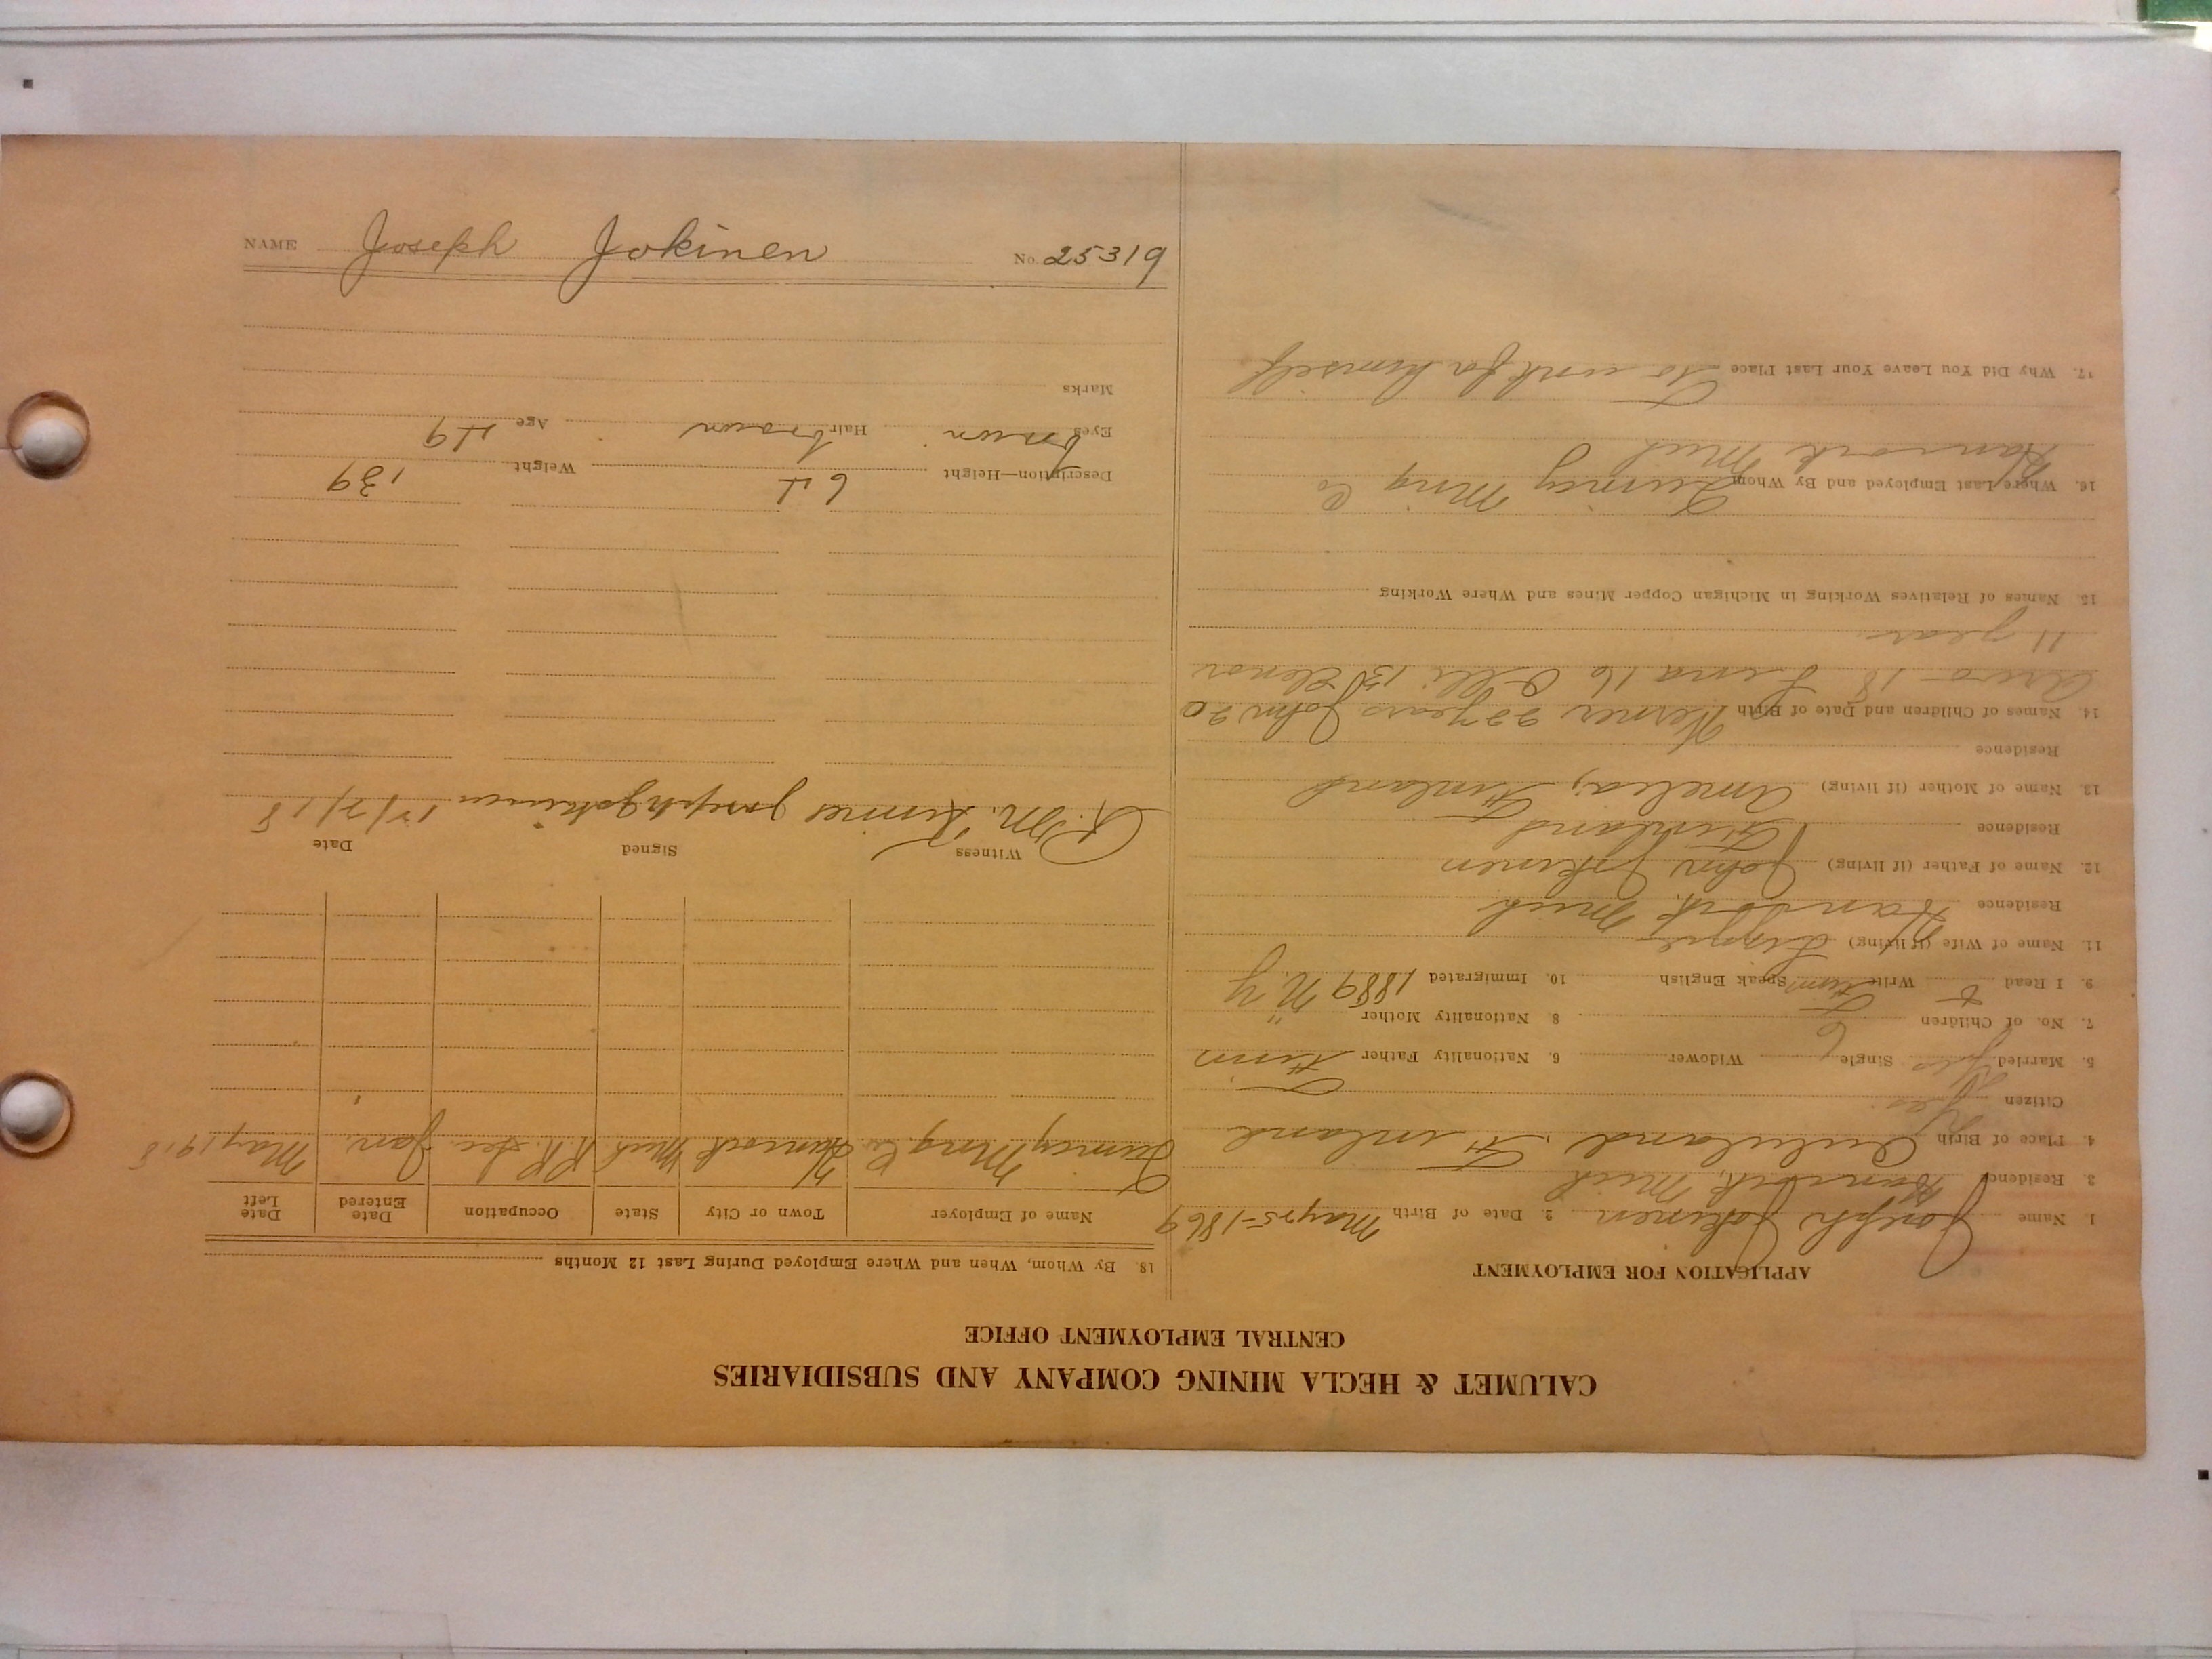 CALUMET & HECLA MINING COMPANY AND SUBSIDIARIES
CENTRAL EMPLOYMENT OFFICE
APPLICATION FOR EMPLOYMENT
1. Name Joseph Jokinen 2. Date of Birth May 25-1869
3. Residence Hancock, Mich
4. Place of Birth Finland
Citizen Yes
5. Married Yes Single Widower 6. Nationality Father Finn
7. No. of Children 6 8 Nationality Mother "
9. I Read Write Finn Speak English 10. Immigrated 1889 N.Y
11. Name of Wife (if living)
Residence Hancock, Mich
12. Name of Father (if living) John Jokinen
Residence Finland
13. Name of Mother (if living) Amelia, Finland
Residence
14. Names of Children and Date of Birth Werner 22 years John 20
18 16 13 Elenor
11 years
15. Names of Relatives Working in Michigan Copper Mines and Where Working
16. Where Last Employed and By Whom Quincy Mng Co
Hancock Mich
17. Why Did You Leave Your Last Place To work for himself
18. By Whom, When and Where Employed During Last 12 Months
Name of Employer Town or City State Occupation Date Entered Date Left
Quincy Mng Co. Hancock Mich R.R. Jan. May 1918
Witness Signed Date
Joseph Jokinen
Description—Height Weight 139
Eyes brown Hair brown Age 49
Marks
NAME Joseph Jokinen No. 25319